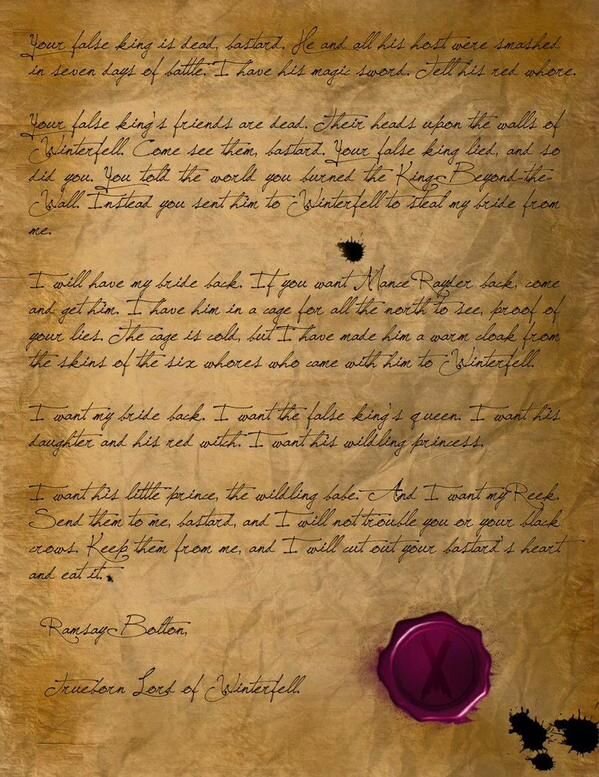 Your false king is dead, bastard. He and all his host were smashed
in seven days of battle. I have his magic sword. Tell his red whore.
Your false king's friends are dead. Their heads upon the walls of
Winterfell. Come see them, bastard. Your false king lied, and so
did you. You told the world you burned the King-Beyond-the-
Wall. Instead you sent him to Winterfell to steal my bride from
me.
I will have my bride back. If you want Mance Rayder back, come
and get him. I have him in a cage for all the north to see, proof of
your lies. The cage is cold, but I have made him a warm cloak from
the skins of the six whores who came with him to Winterfell.
I want my bride back. I want the false king's queen. I want his
daughter and his red witch. I want his wildling princess.
I want his little prince, the wildling babe. And I want my Reek.
Send them to me, bastard, and I will not trouble you or your black
crows. Keep them from me, and I will cut out your bastard's heart
and eat it.
Ramsay Bolton,
Trueborn Lord of Winterfell.